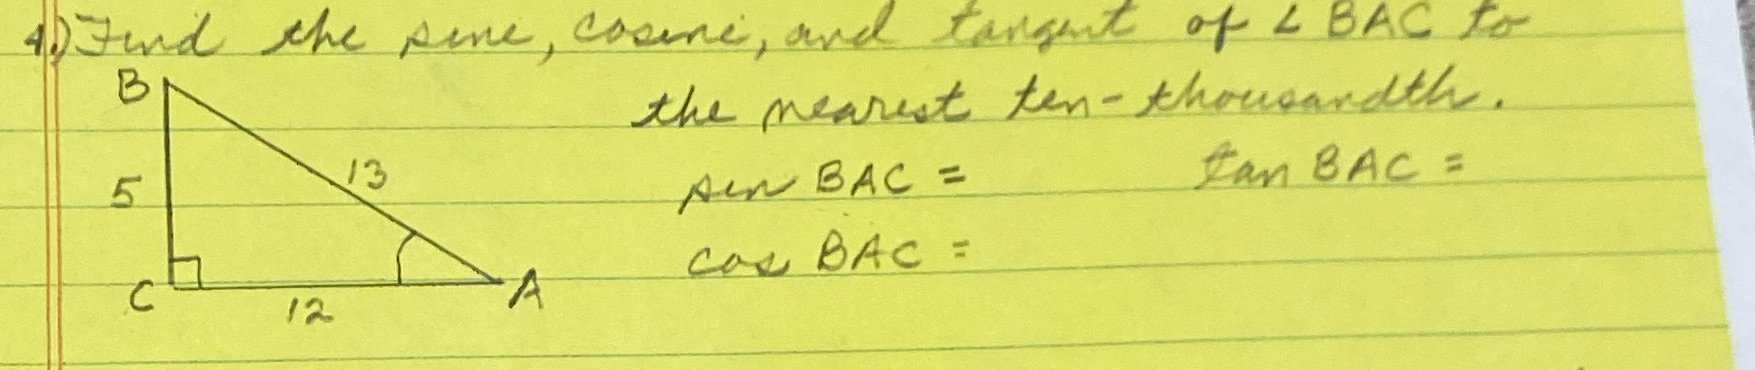 4.) Find the sine, cosine, and tangent of ∠ BAC to
the nearest ten-thousandth.
B
13
5
sin BAC =
tan BAC =
cos BAC =
C
12
A